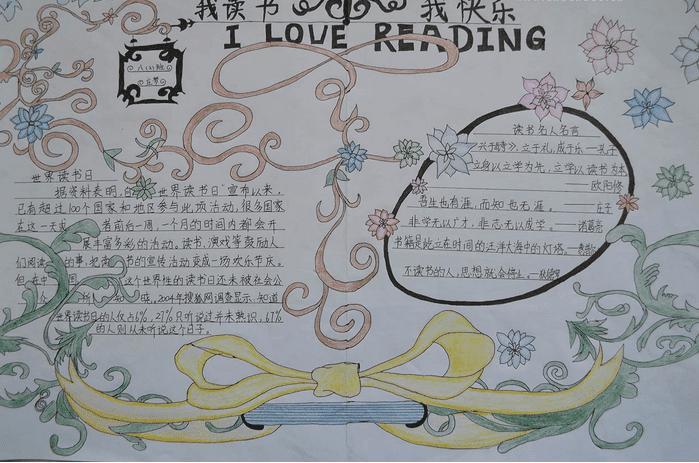 我读书 我快乐
I LOVE READING
八(2)班
世界读书日
据资料表明,自 世界读书日"宣布以来,
已有超过100个国家和地区参与此项活动,很多国家
在这一天或 者前后一周,一个月的时间内都会开
展丰富多彩的活动。读书、演戏等鼓励人
们阅读 的事,把 书的宣传活动变成一场欢乐节庆。
但 在中 国 这个世界性的读书日还未被社会公
所 晓,2004年搜狐网调查显示,知道
世界读书日的人仅占6%,27%只听说过并未熟识,67%
的人则从未听说这个日子。
读书名人名言
兴于诗,立于礼,成于乐——孔子
立身以立学为先,立学以读书为本
——欧阳修
吾生也有涯,而知也无涯。——庄子
非学无以广才,非志无以成学。——诸葛亮
书籍是屹立在时间的汪洋大海中的灯塔。
不读书的人,思想就会停止。